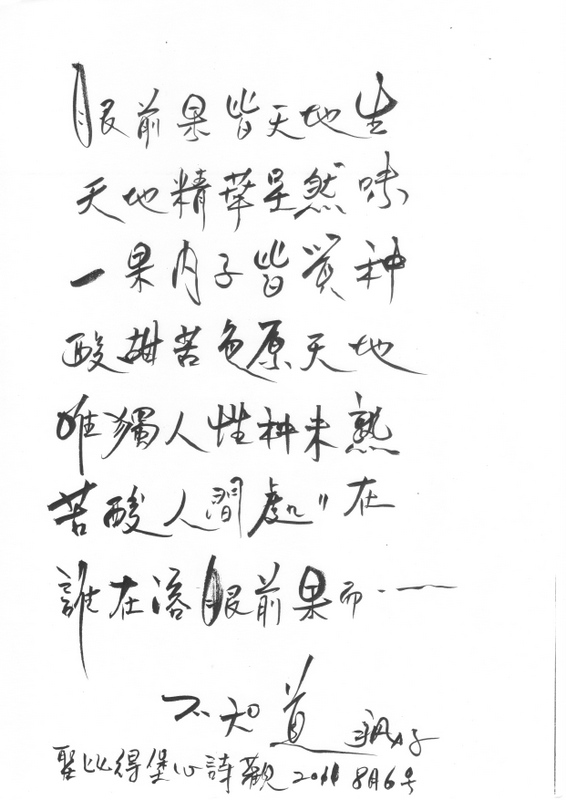 眼前果皆天地生
天地精華呈然味
一果內子皆質种
酸甜苦色原天地
唯獨人性料未熟
苦酸人間處〃在
誰在溶眼前果而……
不知道
聖比得堡心詩觀 2011 8月6号